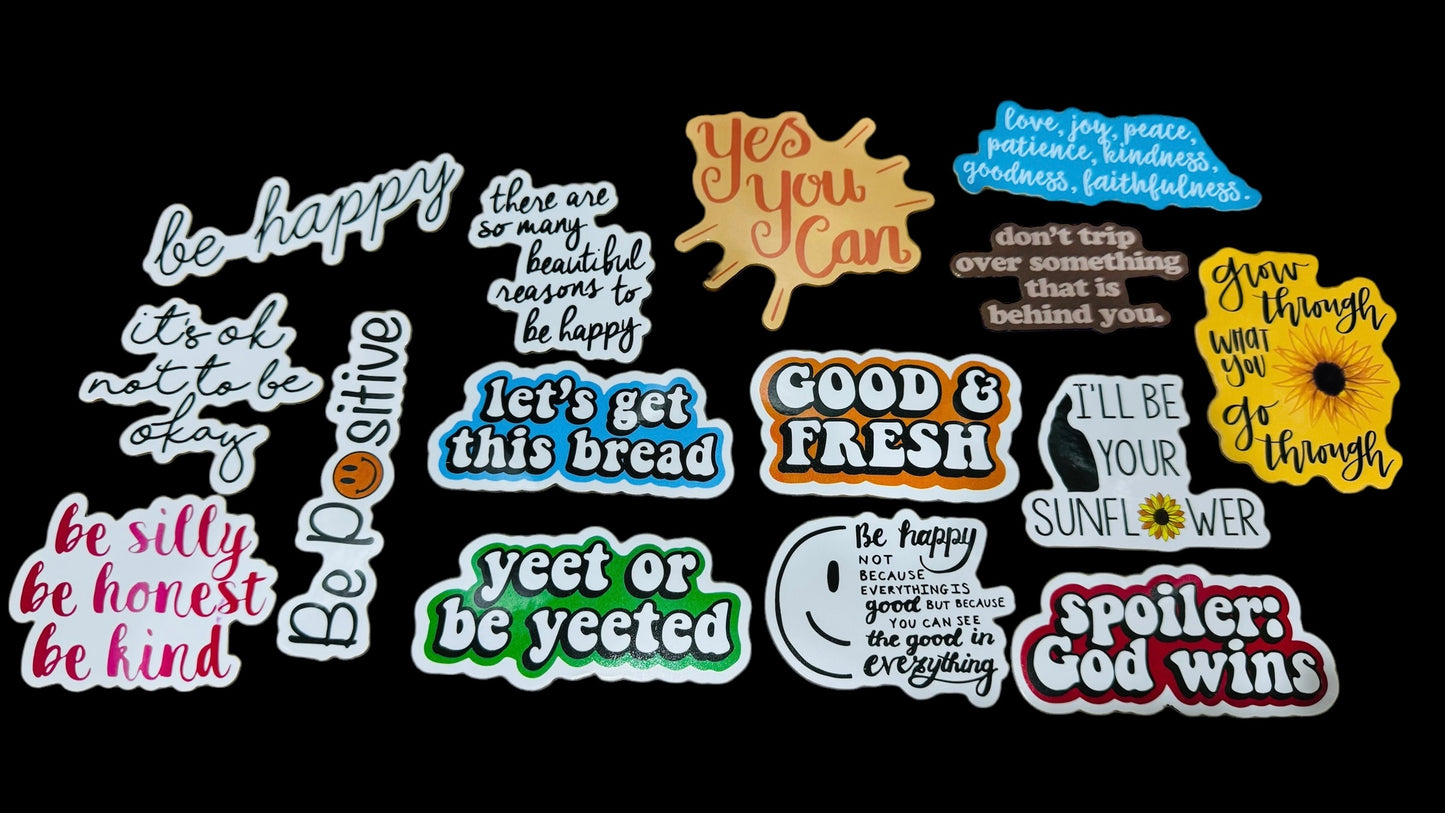 be happy
it's ok
not to be
okay
be silly
be honest
be kind
Be positive
there are
so many
beautiful
reasons to
be happy
let's get
this bread
yeet or
be yeeted
Yes
You
Can
GOOD &
FRESH
Be happy
NOT
BECAUSE
EVERYTHING IS
good BUT BECAUSE
YOU CAN SEE
the good in
everything
love, joy, peace,
patience, kindness,
goodness, faithfulness.
don't trip
over something
that is
behind you.
I'LL BE
YOUR
SUNFLOWER
grow
through
WHAT
YOU
go
through
spoiler:
God wins